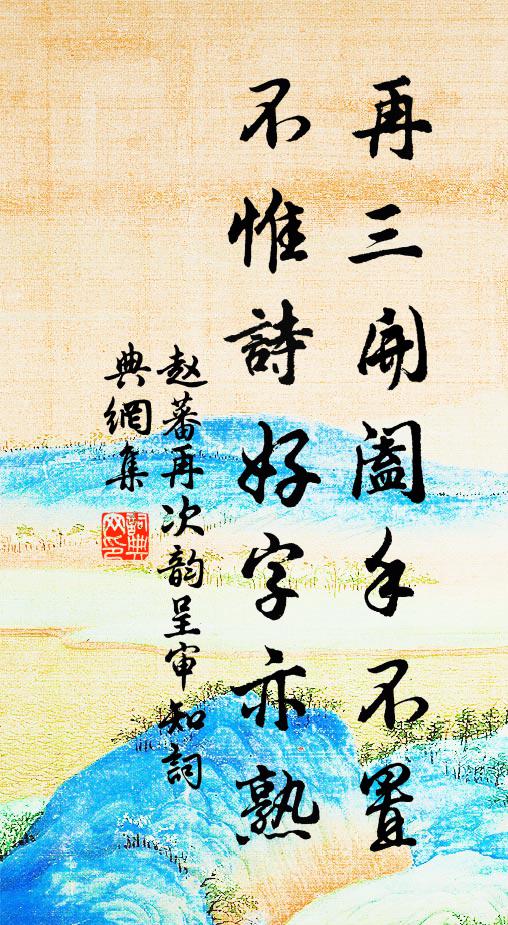 再三開闔手不置
不惟詩好字亦熟
赵蕃再次韵呈审知詞
典網集
詞典网印